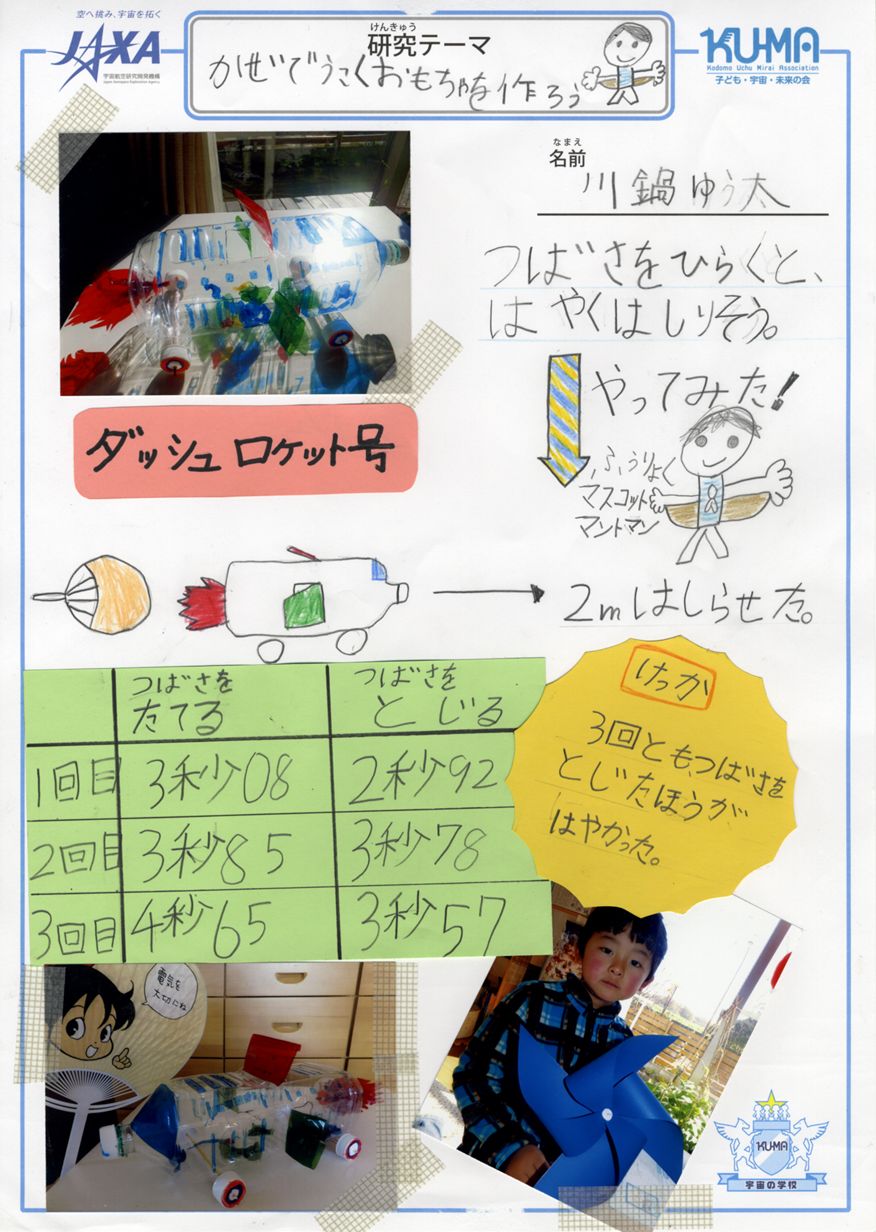 空へ挑み、宇宙を拓く
JAXA
宇宙航空研究開発機構
Japan Aerospace Exploration Agency
けんきゅう
研究テーマ
かぜでうごくおもちゃを作ろう
KU-MA
Kodomo Uchu Mirai Association
子ども・宇宙・未来の会
なまえ
名前
川鍋ゆう太
つばさをひらくと、
はやくはしりそう。
やってみた!
ふうりょく
マスコット
マントマン
ダッシュロケット号
2mはしらせた。
つばさを
たてる
つばさを
とじる
1回目 3秒08 2秒92
2回目 3秒85 3秒78
3回目 4秒65 3秒57
けっか
3回とも、つばさを
とじたほうが
はやかった。
電気を
大切にね
KU-MA
宇宙の学校